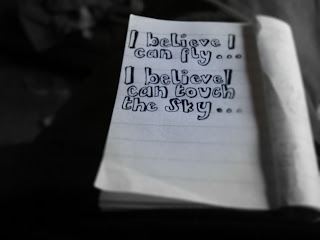 I believe I
can fly...
I believe I
can touch
the sky...